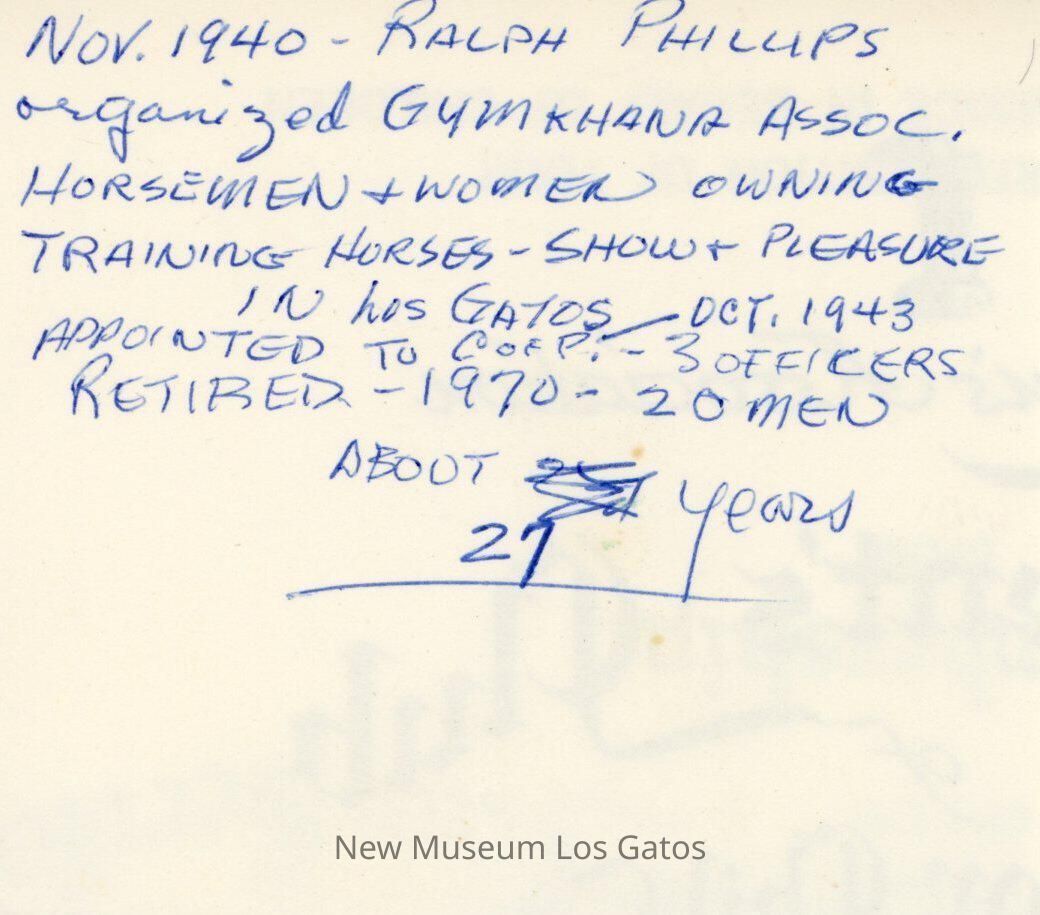 Nov. 1940 - RALPH PHILLIPS
organized GYMKHANA ASSOC.
HORSEMEN + WOMEN OWNING
TRAINING HORSES - SHOW + PLEASURE
IN Los GATOS - OCT. 1943
APPOINTED TO C of P. - 3 OFFICERS
RETIRED - 1970 - 20 MEN
ABOUT years
27
New Museum Los Gatos